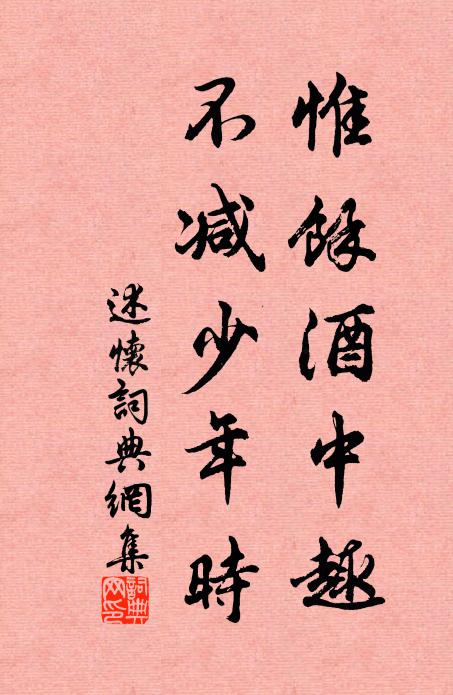 惟餘酒中趣
不減少年時
述懷詞典網集
詞典網印